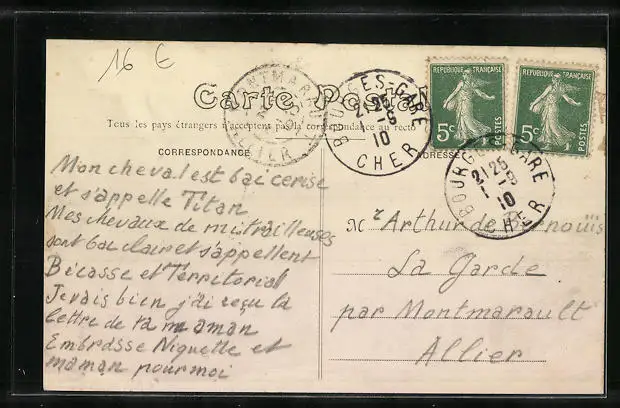 16 €
Carte Postale
Tous les pays étrangers n'acceptent pas la correspondance au recto
CORRESPONDANCE
ADRESSE
REPUBLIQUE FRANÇAISE
5c
POSTES
REPUBLIQUE FRANÇAISE
5c
POSTES
BOURGES-GARE
21 25
10
CHER
BOURGES-GARE
21 25
10
CHER
ALLIER
Mon cheval est bai cerise
et s'appelle Titan
Mes chevaux de mitrailleuses
sont bai clair et s'appellent
Bécasse et Territorial
Je vais bien j'ai reçu la
lettre de ta maman
Embrasse Niquette et
maman pour moi
Mr Arthur de
La Garde
par Montmarault
Allier